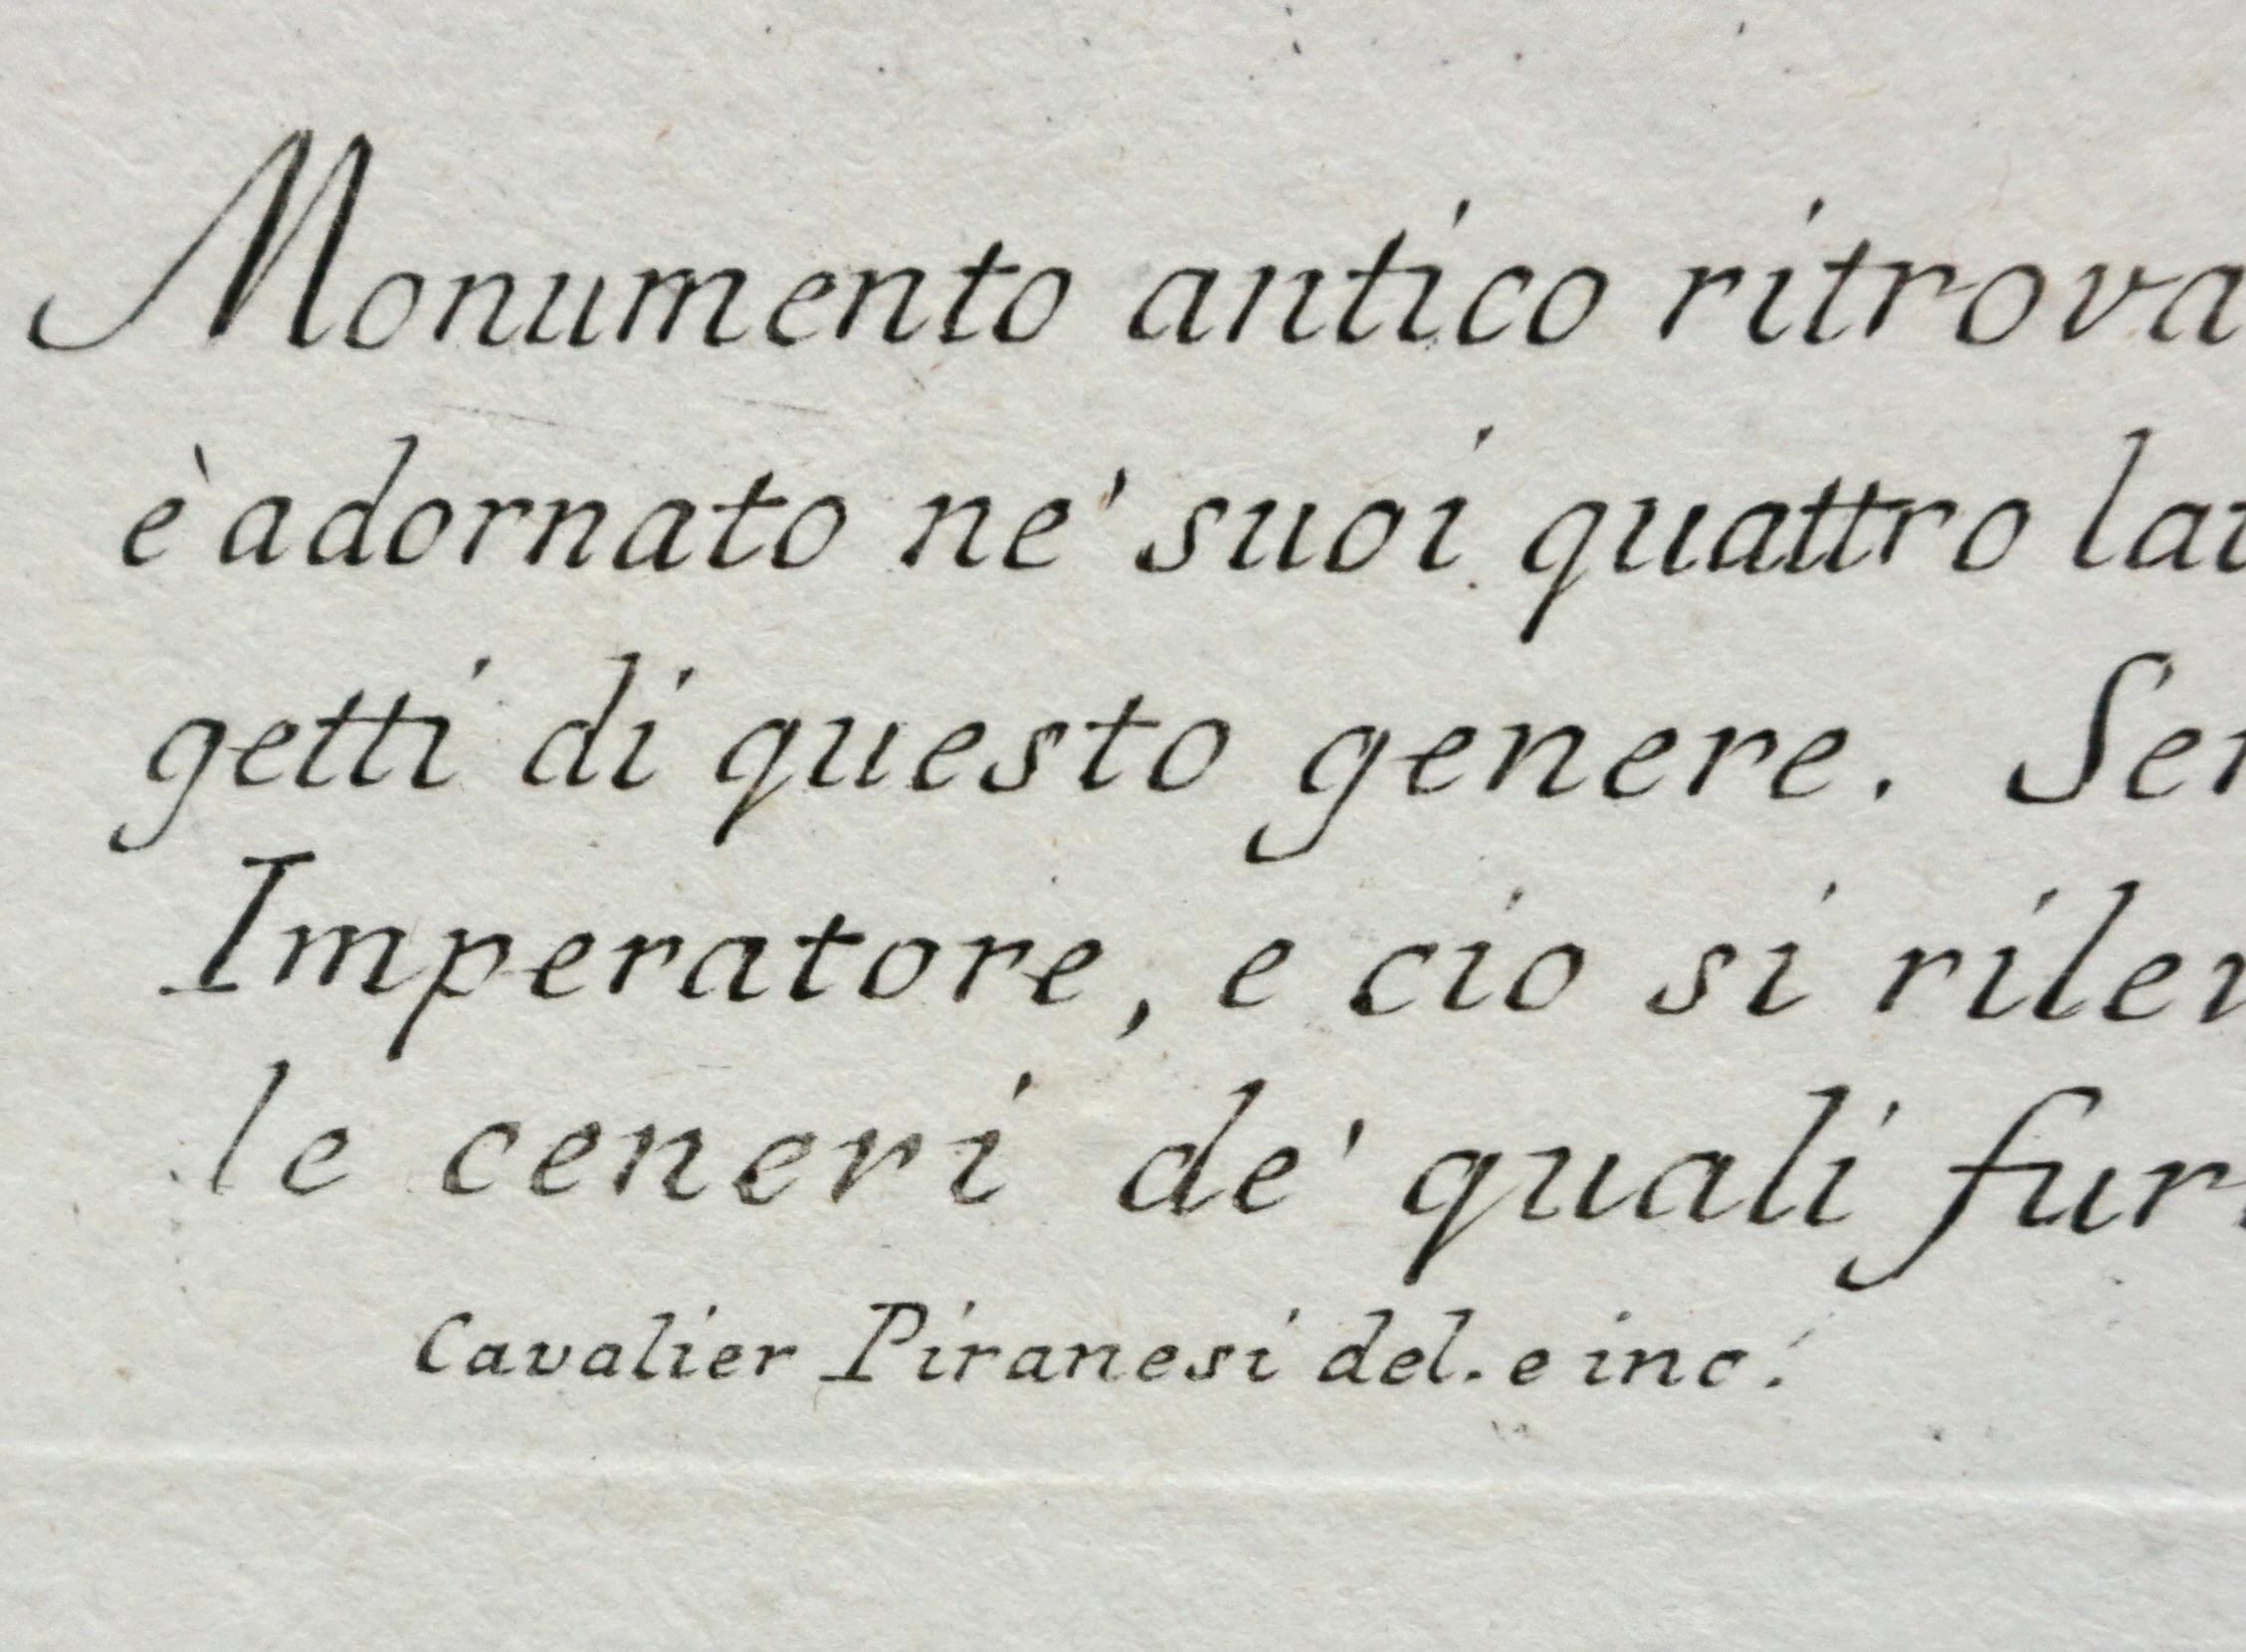 Monumento antico ritrova
è adornato ne' suoi quattro lat
getti di questo genere. Ser
Imperatore, e cio si rilev
le ceneri de' quali fur
Cavalier Piranesi del. e inc.